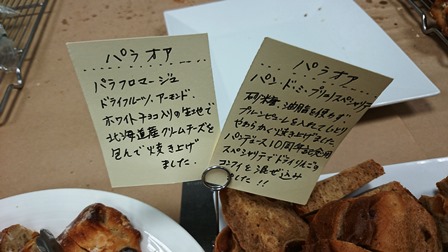 パラオア
パラフロマージュ
ドライフルーツ、アーモンド、
ホワイトチョコ入りの生地で
北海道産クリームチーズを
包んで焼き上げ
ました。
パラオア
パン・ド・ミ・プリュ/スペシャリテ
砂糖、油脂を使わず、
プルーンピューレを入れてしっとり
やわらかく焼き上げました。
10周年記念
スペシャリテでドライりんご
コンフィを混ぜ込み
ました!!